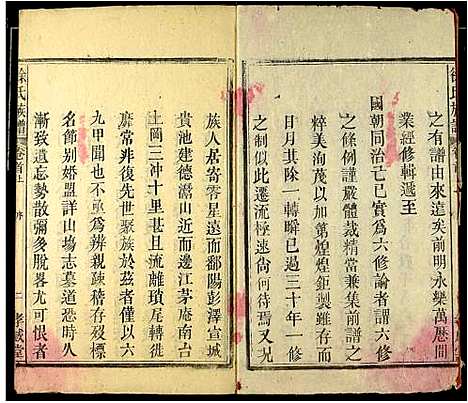 之有譜由來遠矣前明永樂萬曆間
業經修輯遞至
國朝同治己巳實為六修論者謂六修
之條例謹嚴體裁精當兼集前譜之
粹美洵茂以加第煌煌鉅製雖存而
日月其除一轉瞬已三十年一修
之制似此遷流極速尚何待焉又況
徐氏族譜 卷首上 序 二 孝敬堂
族人居寄零星遠而鄱陽彭澤宣城
貴池建德濳山近而邊江茅庵南古
土岡三冲十里甚且流離瑣尾轉徙
靡常非復先世聚族於茲者僅以六
九甲聞也不早為辨親疎稽存歿標
名節别婚盟詳山塲志墓道恐時久
漸致遺忘勢散彌多脫畧尤可恨者